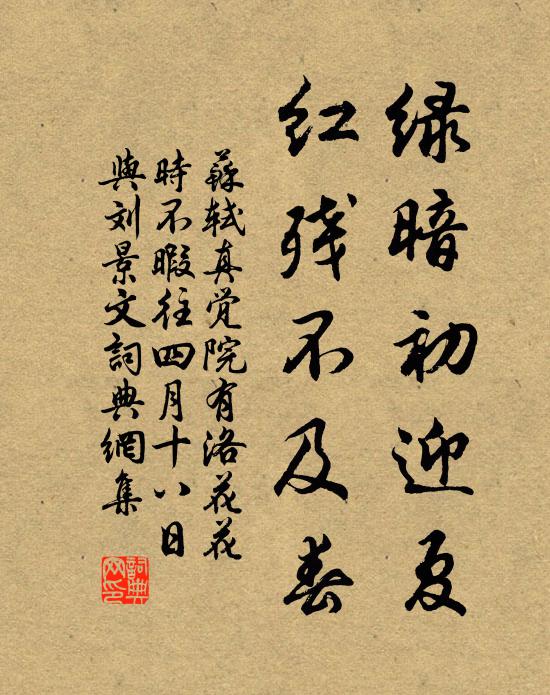 绿暗初迎夏
红残不及春
苏轼真觉院有洛花花
时不暇往四月十八日
與刘景文詞典網集
詞典网印